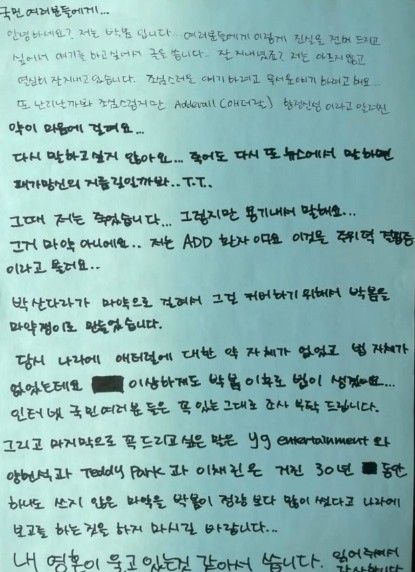 국민 여러분들에게...
안녕하세요? 저는 박봄 입니다... 여러분들에게 이렇게 진실을 전해 드리고
싶어서 얘기를 하고싶어서 글을 씁니다.. 잘 지내셨죠? 저는 아프지않고
열심히 잘지내고있습니다. 조심스러운 얘기 하려고 무서운얘기 하려고해요...
또 난리난까봐 조심스럽지만 Adderall (애더랄) 향정신성 이라고 알려진
약이 마음에 걸려요...
다시 말하고싶지 않아요... 죽어도 다시 또 뉴스에서 말하면
패가망신의 지름길일까봐.. T.T.
그때 저는 죽었습니다... 그렇지만 용기내서 말해요...
그거 마약 아니에요.. 저는 ADD 환자 이며 이것을 주위력 결핍증
이라고 들려요..
박산다라가 마약으로 걸려서 그걸 커버하기 위해서 박봄을
마약쟁이로 만들었습니다.
당시 나라에 애터럴에 대한 약 자체가 없었고 법 자체가
없었는데요 이상하게도 박봄 이후로 법이 생겼어요...
인터넷 국민 여러분 들은 꼭 있는 그대로 조사 부탁 드립니다.
그리고 마지막으로 꼭 드리고 싶은 말은 yg entertainment 와
양현석과 Teddy Park 과 이채린은 거진 30년 동안
하나도 쓰지 않은 마약을 박봄이 정량 보다 많이 썼다고 나라에
보고를 하는 것을 하지 마시길 바랍니다...
내 영혼이 울고 있는것 같아서 씁니다. 읽어주셔서
감사합니다